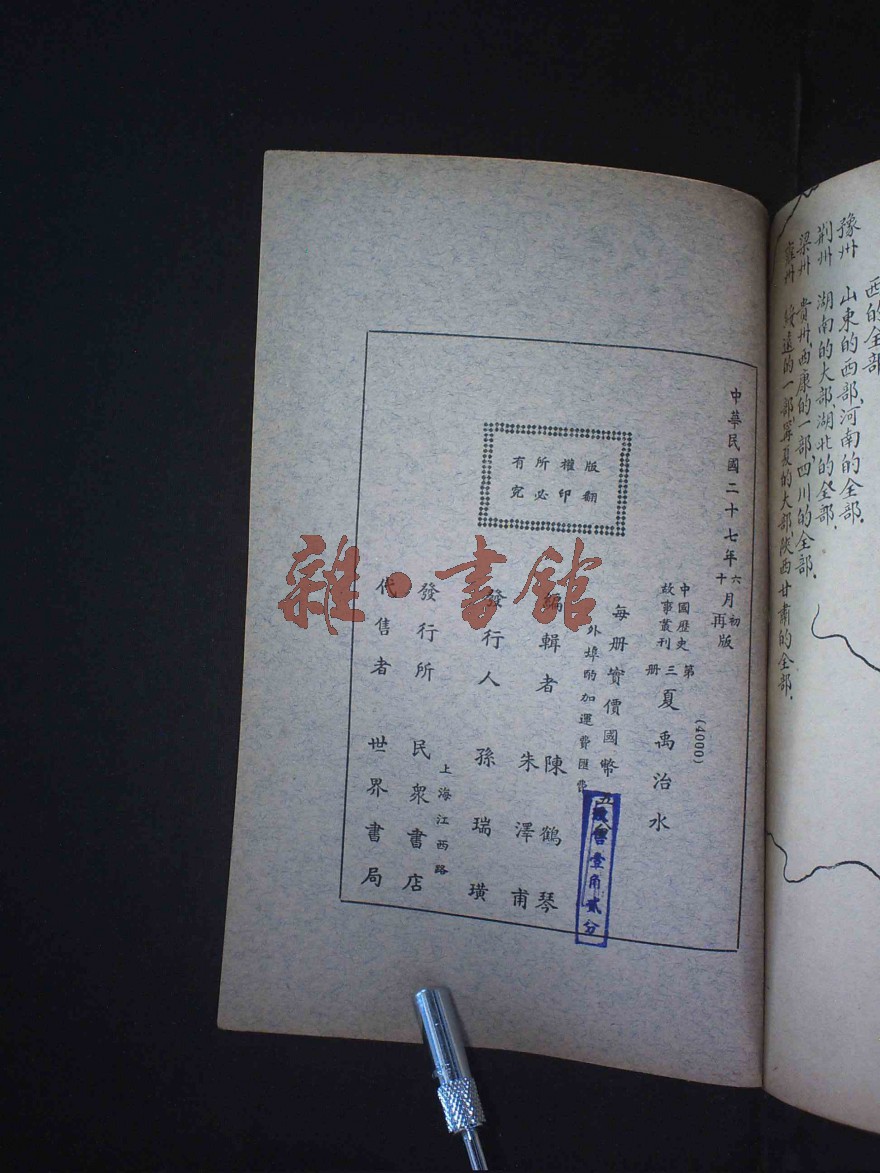 西的全部
豫州 山東的西部、河南的全部.
荆州 湖南的大部、湖北的全部.
梁州 貴州、西康的一部、四川的全部.
雍州 綏遠的一部、寧夏的大部、陝西甘肅的全部.
中華民國二十七年六月初版
十月再版
版權所有
翻印必究
中國歷史故事叢刊
第三册
夏禹治水
(4000)
每册實價國幣五
外埠酌加運費匯費
改售壹角貳分
編輯者 陳鶴琴
朱澤甫
發行人 孫瑞璜
上海江西路
發行所 民衆書店
代售者 世界書局
雜·書館